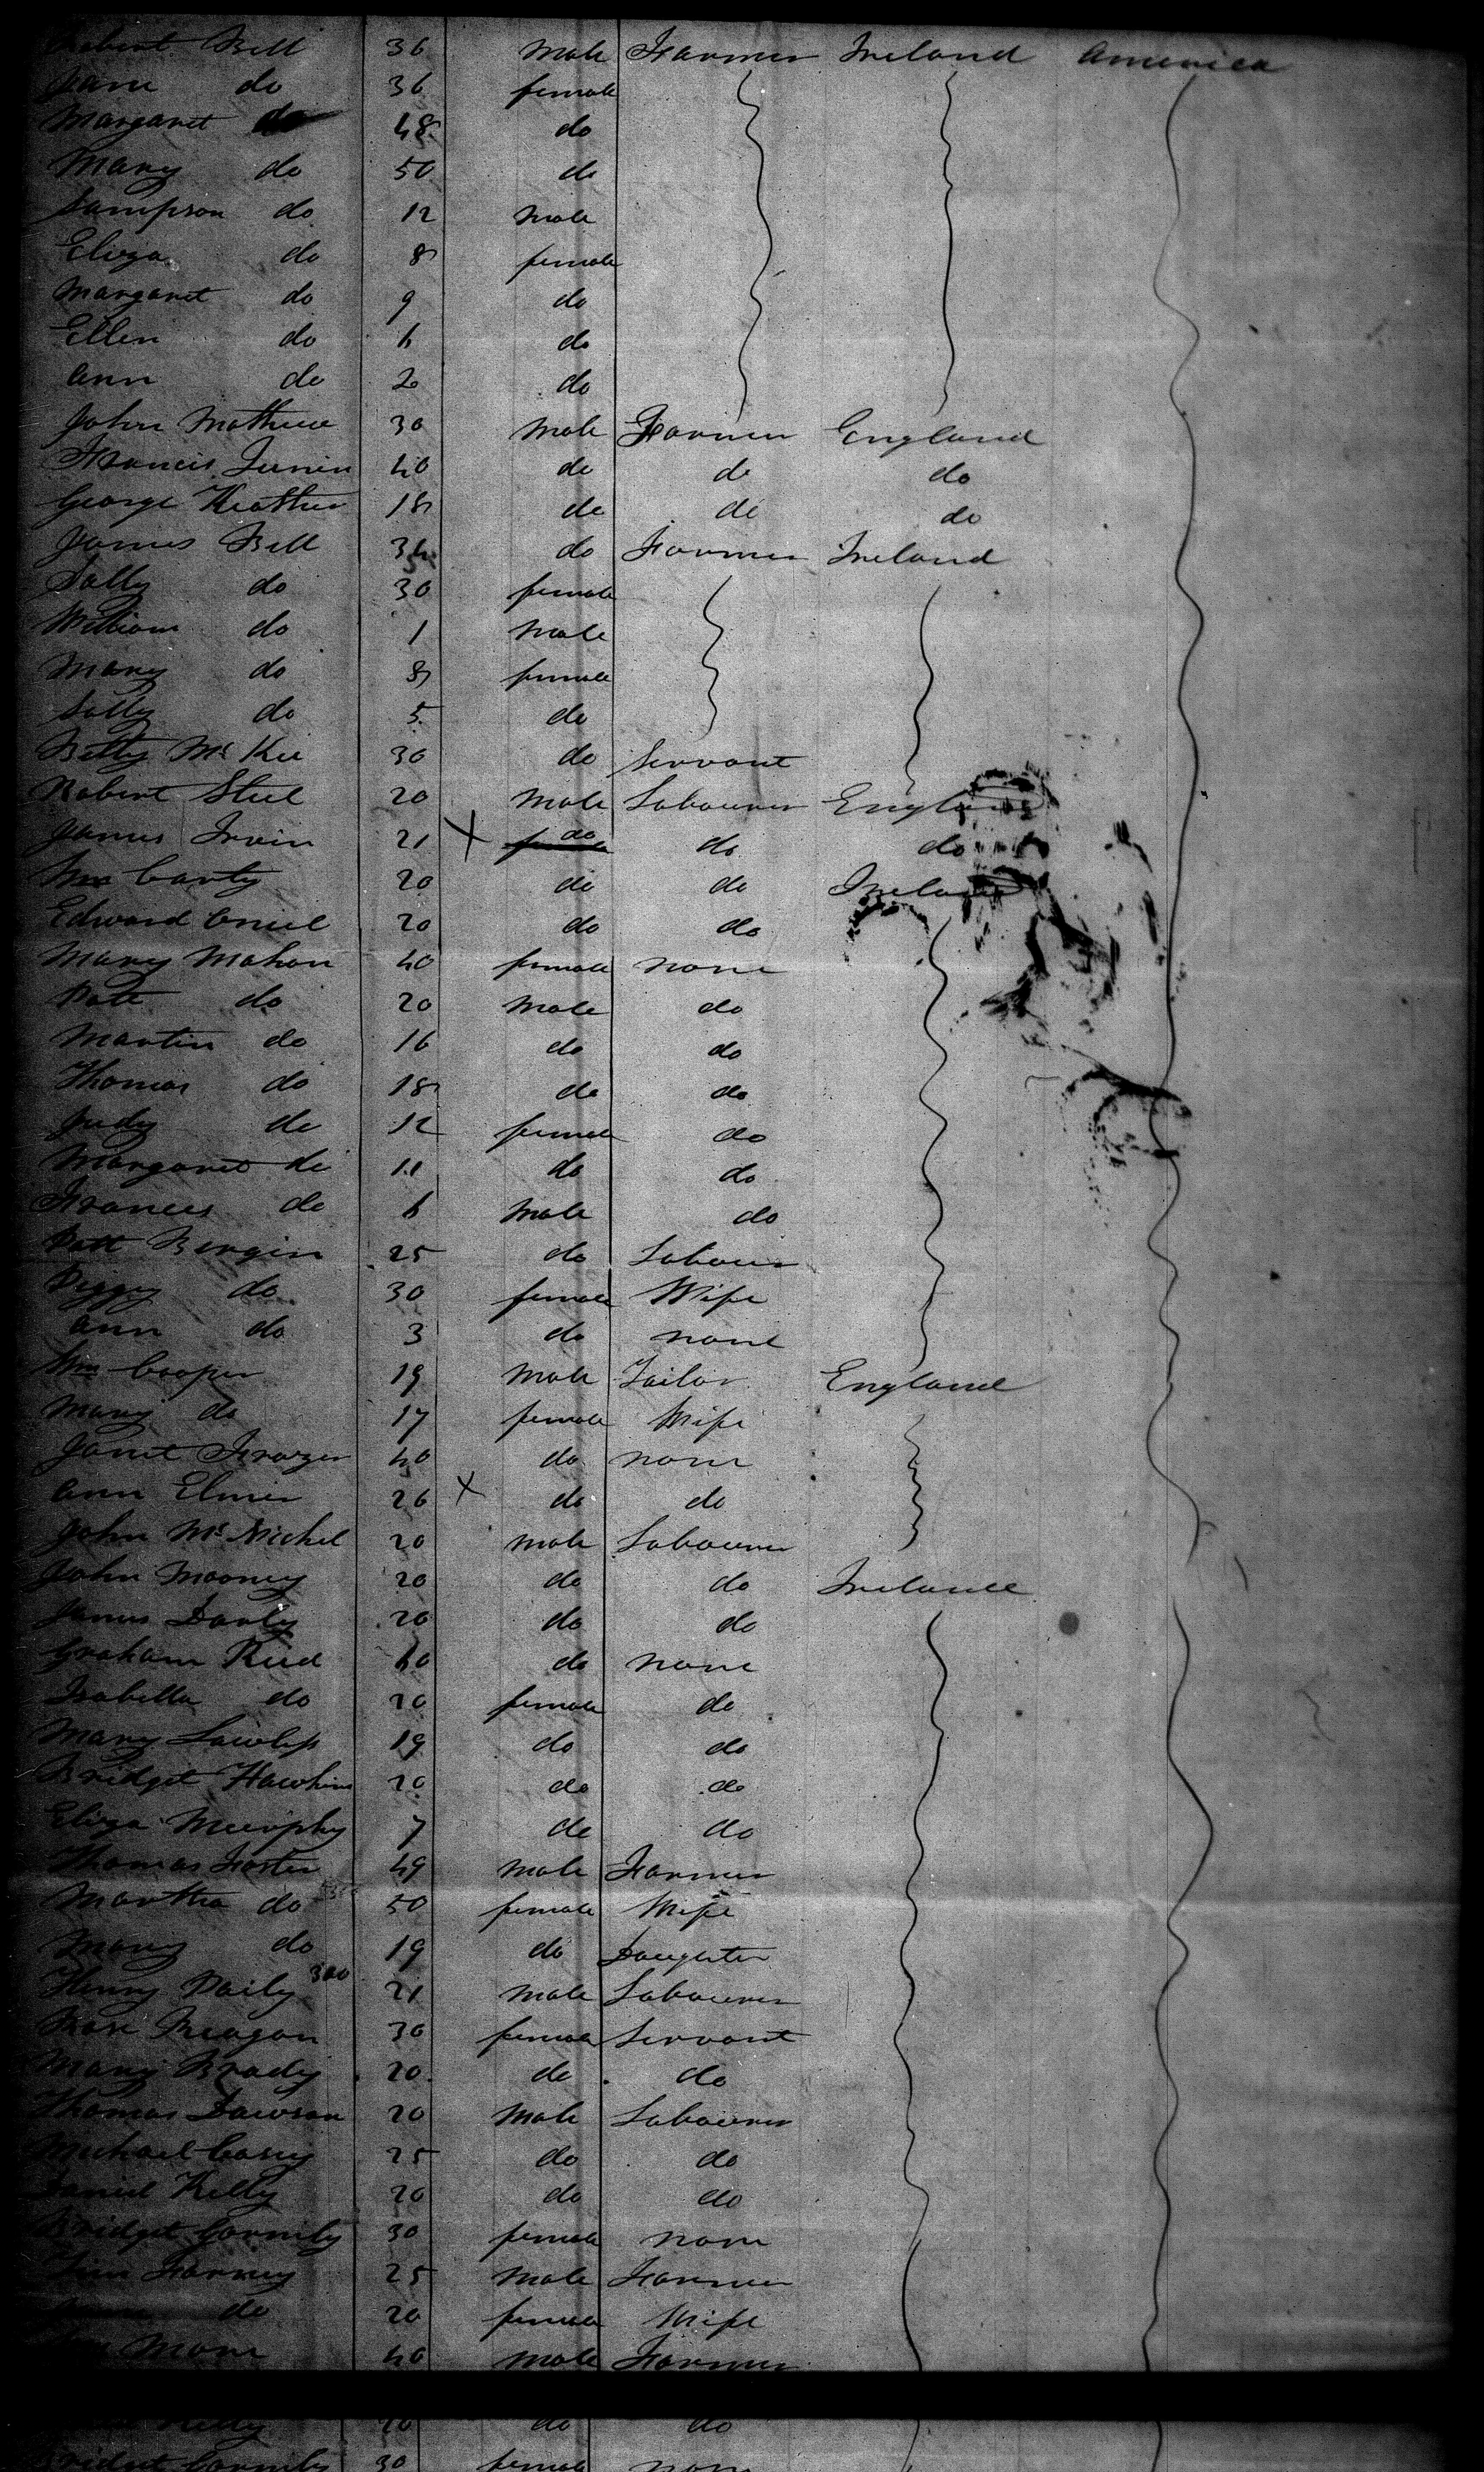 Robert Bell 36 Male Farmer Ireland America
Jane do 36 female
Margaret do 48 do
Mary do 50 do
Sampson do 12 Male
Eliza do 8 female
Margaret do 9 do
Ellen do 6 do
Ann do 2 do
John Mathew 30 Male Farmer England
Francis 40 do do do
George 18 do do do
James Bell 34 do Farmer Ireland
Sally do 30 female
William do 1 Male
Mary do 8 female
Sally do 5 do
Betty McKee 30 do Servant
Robert Steel 20 Male Labourer England
James Irvin 21 X do do do
Wm Carty 20 do do Ireland
Edward Oneil 20 do do
Mary Mahon 40 female none
Patt do 20 Male do
Martin do 16 do do
Thomas do 18 do do
Judy do 12 female do
Margaret do 11 do do
Frances do 6 Male do
Patt Bergin 25 do Labour
Peggy do 30 female Wife
Ann do 3 do none
Wm Cooper 19 Male Tailor England
Mary do 17 female Wife
Janet Frazer 40 do none
Ann Elmer 26 X do do
John McNichel 20 Male Labourer
John Mooney 20 do do Ireland
James Darby 20 do do
Graham Reed 60 do none
Isabella do 20 female do
Mary 19 do do
Bridget Hawkins 20 do do
Eliza Murphy 7 do do
Thomas Foster 49 Male Farmer
Martha do 50 female Wife
Mary do 19 do Daughter
Henry Daily 300 21 Male Labourer
Rose Reagan 30 female Servant
Mary Brady 20 do do
Thomas Dawson 20 Male Labourer
Michael Casey 25 do do
Daniel Kelly 20 do do
Bridget 30 female none
Farney 25 Male Farmer
do 20 female Wife
40 Male Farmer
Kelly 20 do do
Bridget 30 female none